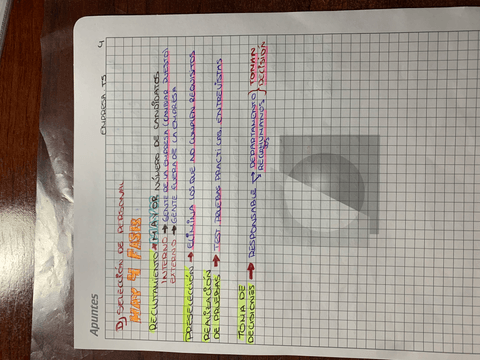 Apuntes
EMPRESA T5 4
D) SELECCIÓN DE PERSONAL
HAY 4 FASES
RECLUTAMIENTO → MAYOR NÚMERO DE CANDIDATOS
INTERNO → GENTE DE LA EMPRESA (CAMBIAR PUESTO)
EXTERNO → GENTE FUERA DE LA EMPRESA
PRESELECCIÓN → ELIMINA LOS QUE NO CUMPLEN REQUISITOS
REALIZACIÓN
DE PRUEBAS → TEST PRUEBAS PRACTICAS, ENTREVISTAS
TOMA DE
DECISIONES → RESPONSABLE DEPARTAMENTO } TOMAN
RECURSOS HUMANOS } DECISIÓN